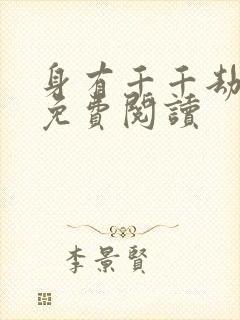 身有千千劫
免費閱讀
李景賢